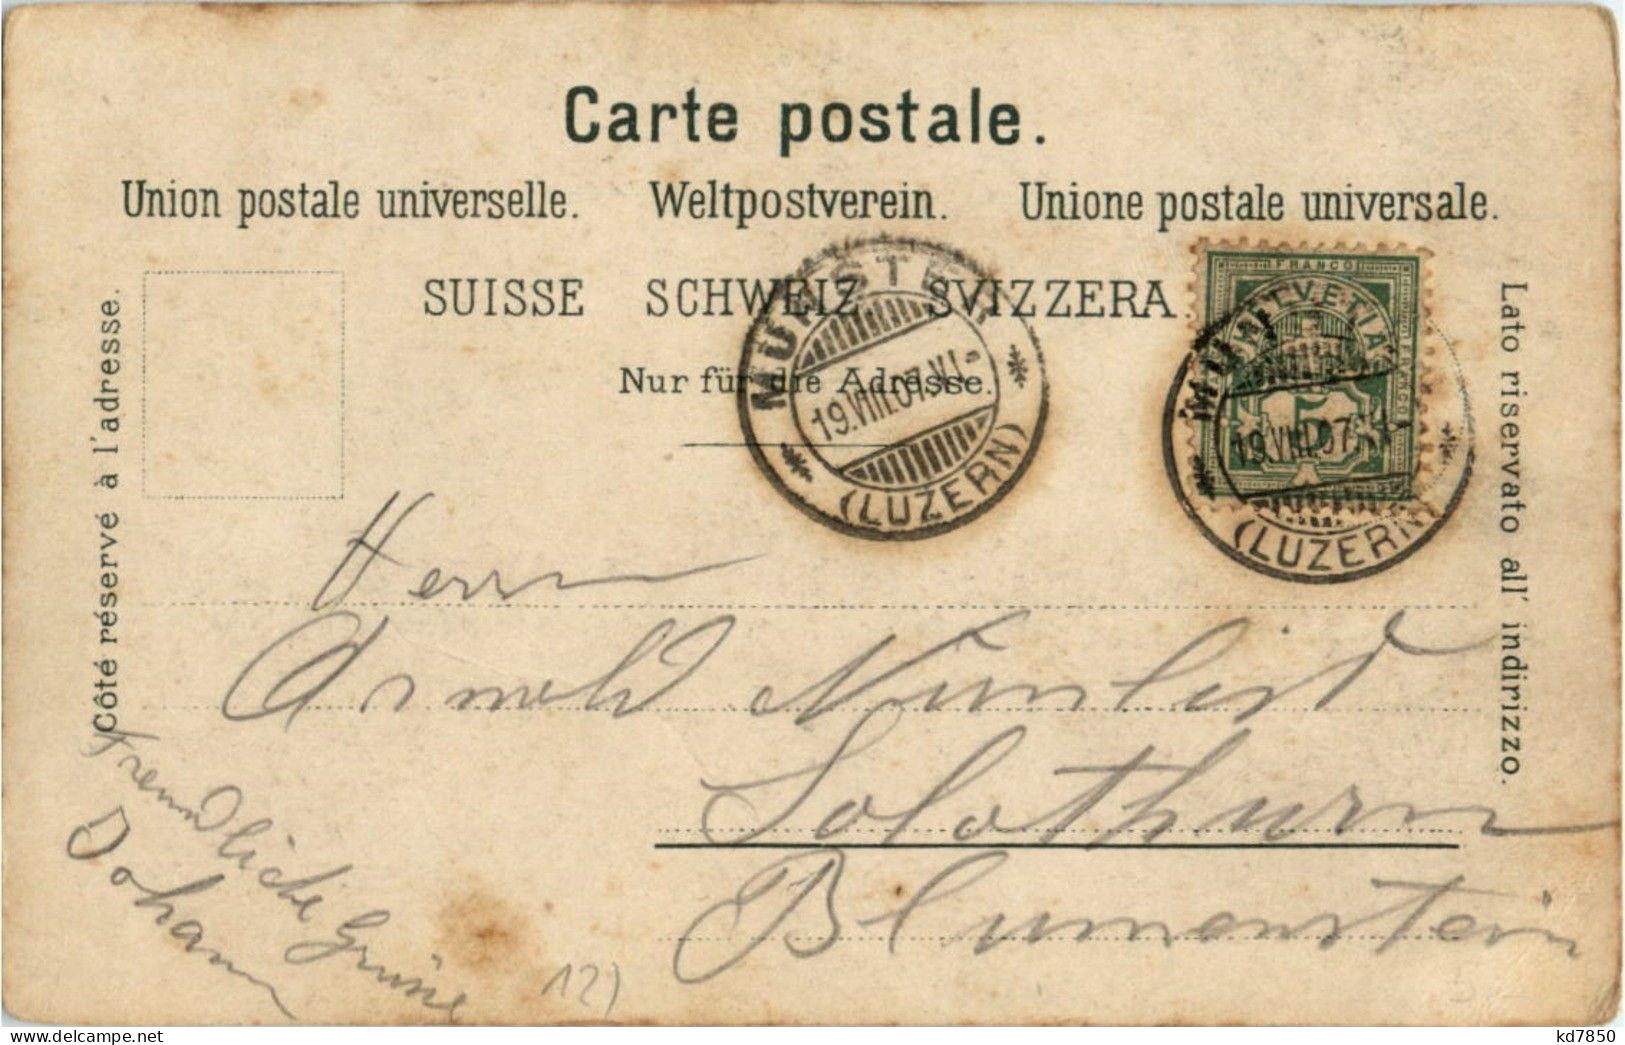 Carte postale.
Union postale universelle. Weltpostverein. Unione postale universale.
SUISSE SCHWEIZ SVIZZERA.
Nur für die Adresse.
Côté réservé à l'adresse.
Lato riservato all' indirizzo.
MÜNSTER
19.VIII.07.VI.
(LUZERN)
FRANCO
HELVETIA
5
MÜN
19.VIII.07.VI.
(LUZERN)
Herrn
Arnold
Solothurn
Blumenstein
Freundliche Grüsse
Johann
12)
kd7850